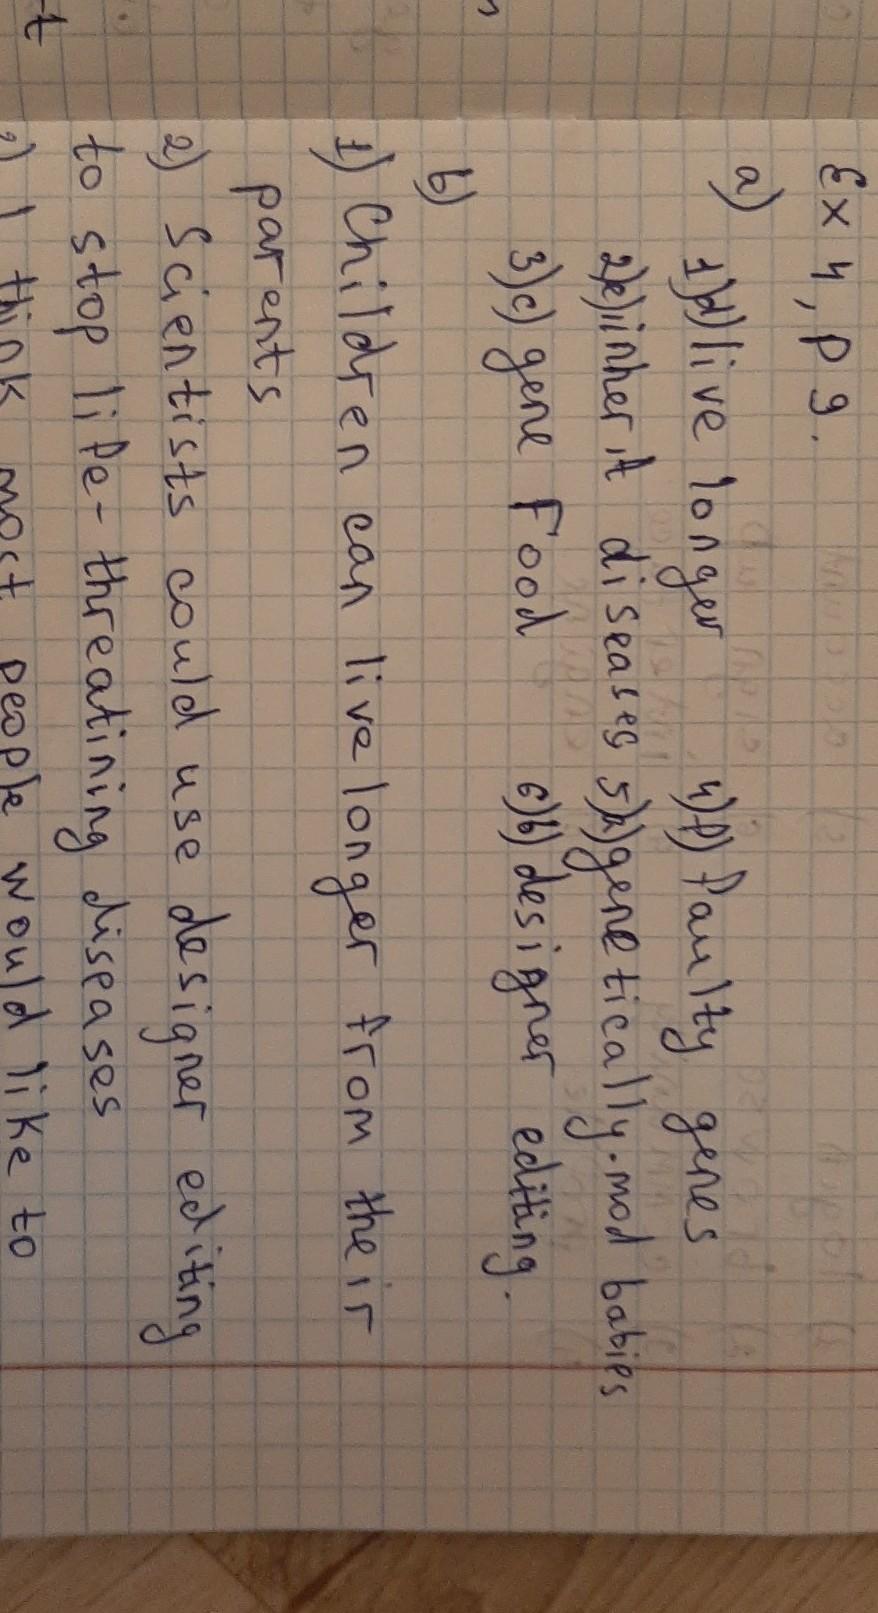 Ex 4, p 9.
a) 1)d) live longer 4)f) faulty genes
2)e) inherit diseases 5)a) genetically-mod babies
3)c) gene Food 6)b) designer editing.
b)
1) Children can live longer from their
parents
2) Scientists could use designer editing
to stop life-threatining diseases
I think most people would like to